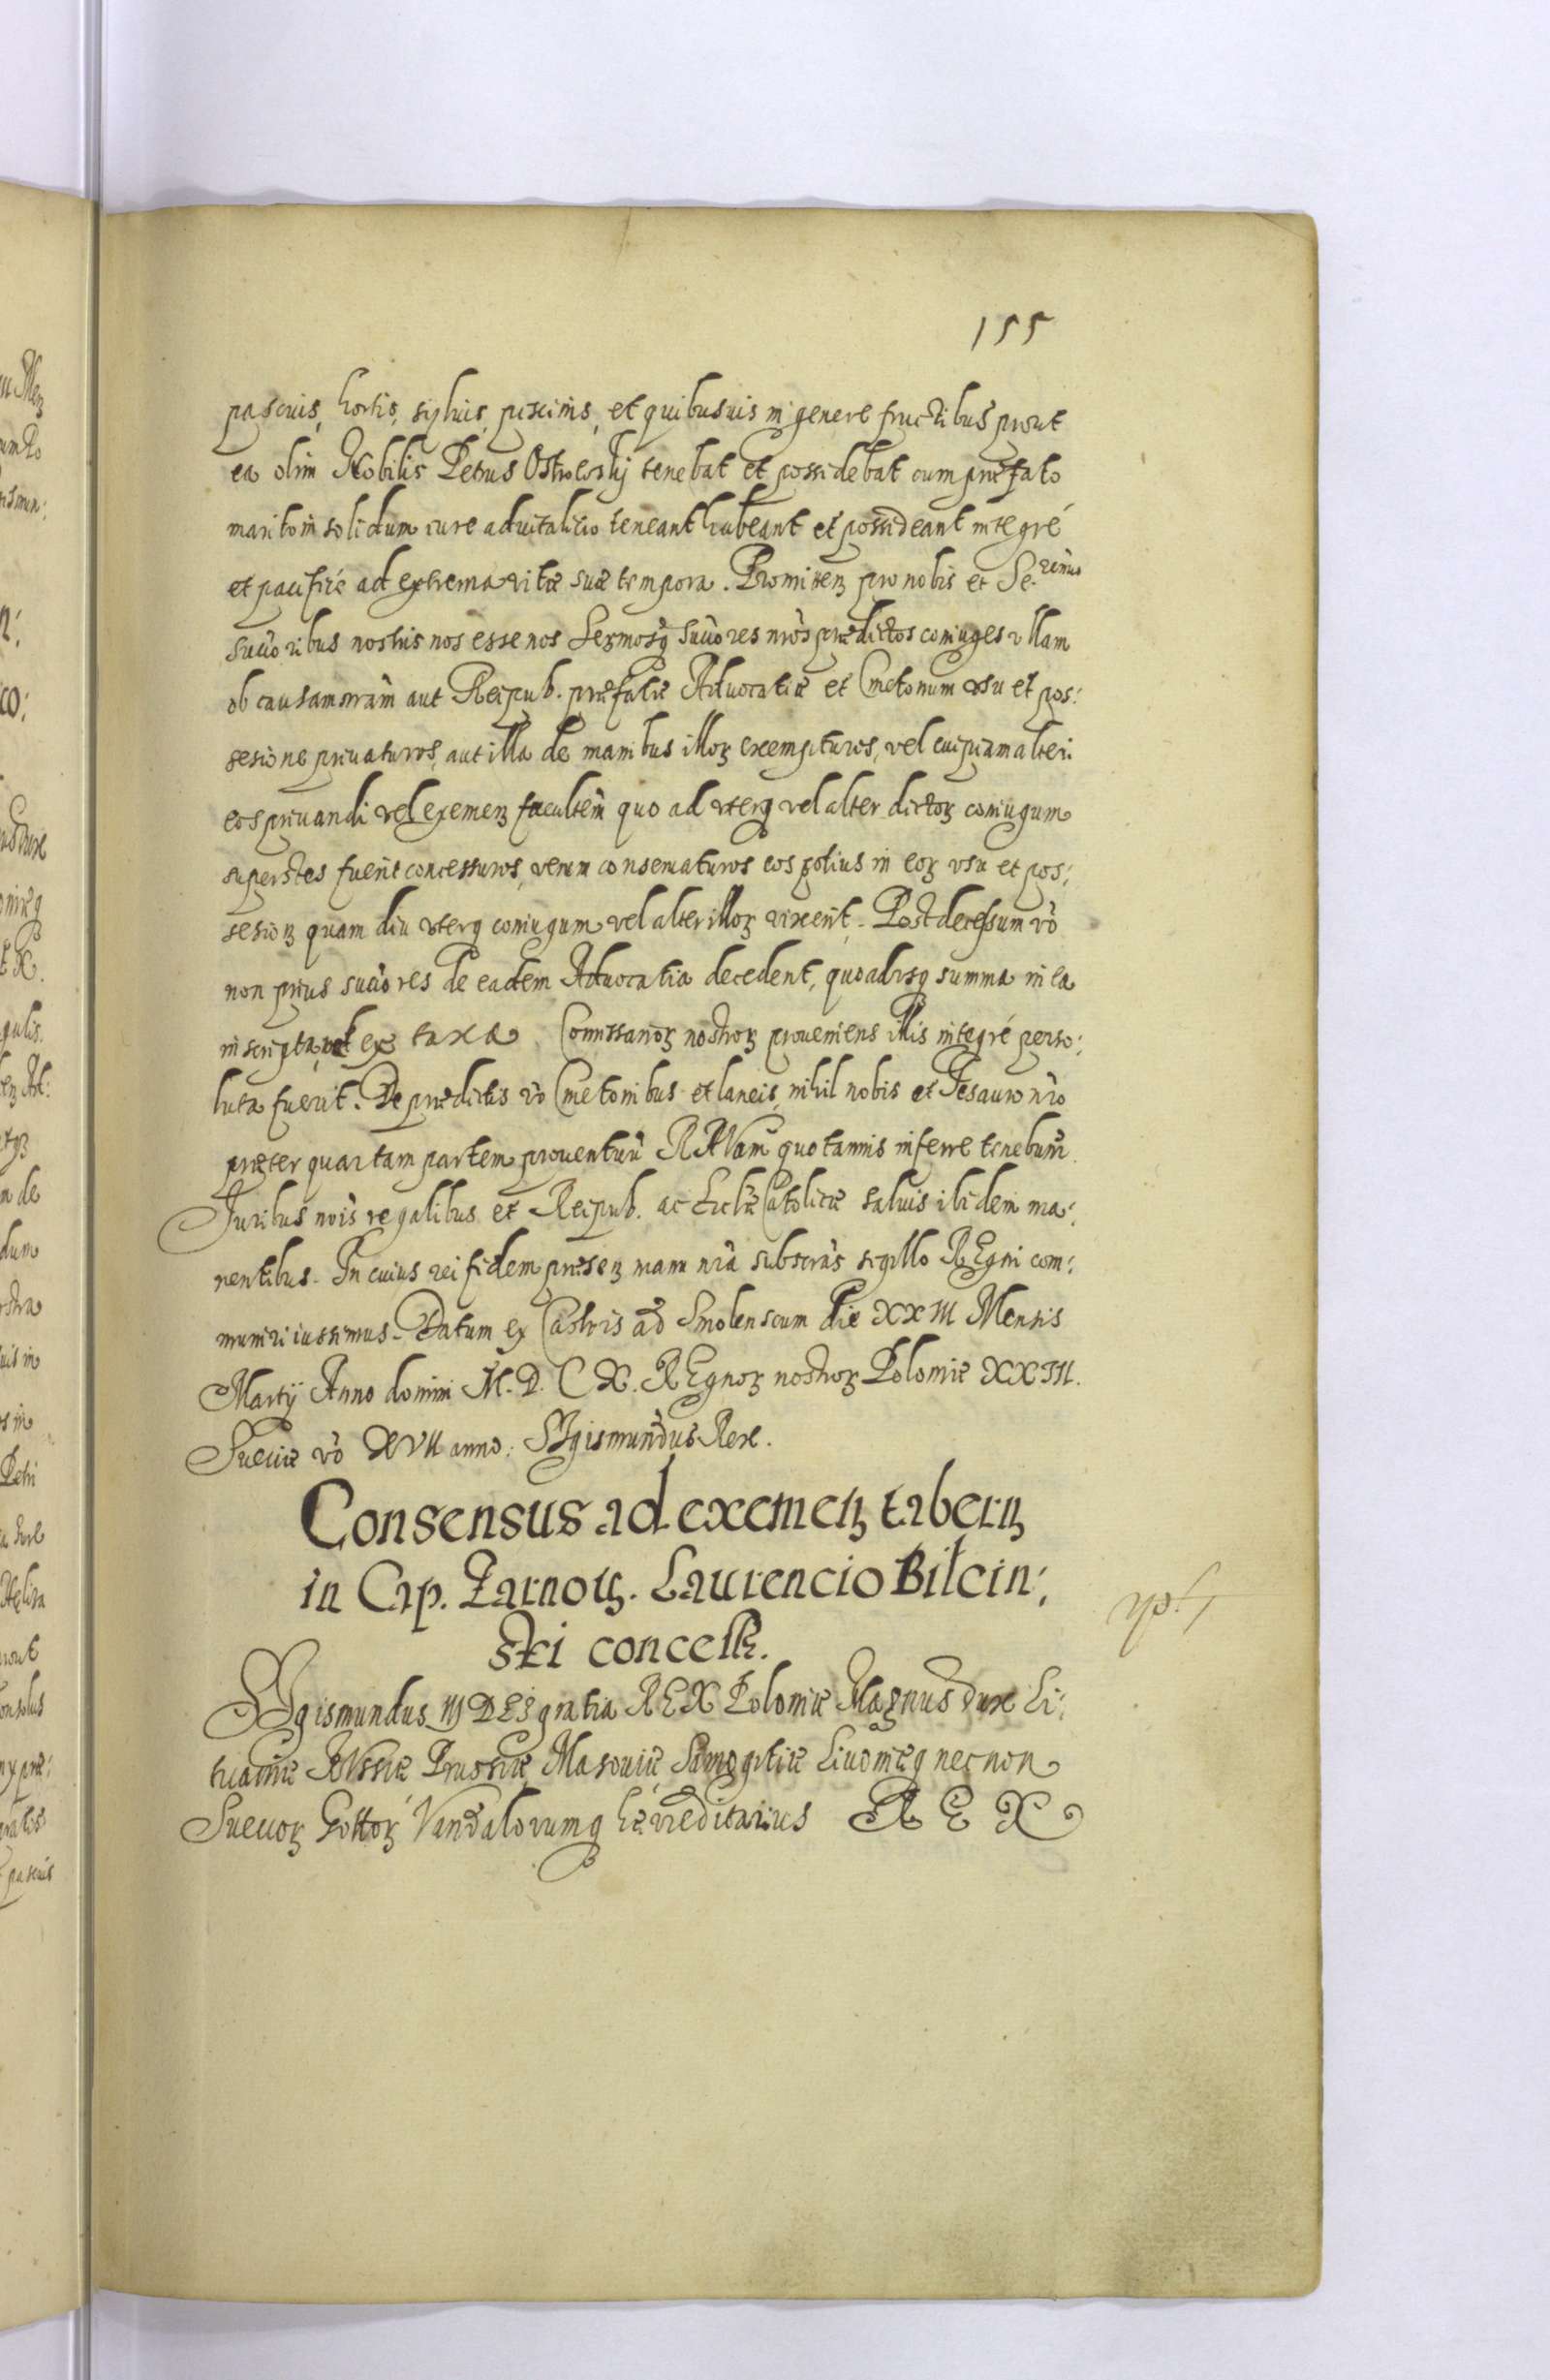 155
pascuis, hortis, syluis, piscinis, et quibusuis in genere fructibus prout
ea olim Nobilis Petrus tenebat et possidebat cum præfato
marito in solidum iure aduitalitio teneant habeant et possideant integré
et pacificé ad extrema vitæ suæ tempora. Promitteñ pro nobis et Se:renmis
Succoribus nostris nos esse nos Sermosq Succores nros prædictos coniuges vllam
ob causam nram aut Reipub. præfatæ Aduocatiæ et Cmetonum vsu et pos:
sesione priuaturos, aut illa de manibus illoꝝ exempturos, vel cuipiam alteri
eos priuandi vel eximenꝫ facultem quo ad vterq vel alter dictoꝝ coniugum
superstes fuerit concessuros, verum conseruaturos eos potius in eoꝝ vsu et pos:
sesionꝫ quam diu vterq coniugum vel alter illoꝝ vixerit. Post decessum vo
non prius succores de eadem Aduocatia decedent, quoadvsq summa in ea
inscripta, vel ex taxa Comissarioꝝ nostroꝝ proueniens illis integré perso:
luta fuerit. De prædictis vo Cmetonibus et laneis, nihil nobis et Tesauro nro
præter quartam partem prouentuu RAVam quotannis inferre tenebunr.
Iuribus nris regalibus et Reipub. ac Ecclæ Catolicæ saluis ibidem ma:
nentibus. In cuius rei fidem præsenꝫ manu nra subscras sigillo REgni com:
muniri iussimus. Datum ex Castris ad Smolenscum die XXIII Mensis
Martij Anno domini M. D. C X. REgnoꝝ nostroꝝ Poloniæ XXIII.
Sueciæ vo XVII anno. SIgismundus Rex.
Consensus ad eximenꝫ tabernꝫ
in Cap. Tarnoꝫ. Laurencio Bilcin:
ski concessꝫ.
SIgismundus III DEI gratia REX Poloniæ Magnus dux Li:
tuaniæ RVssiæ Prussiæ Masouiæ Samogitiæ Liuoniæq necnon
Sueuoꝝ Gottoꝝ Vandalorumq hæreditarius R E X